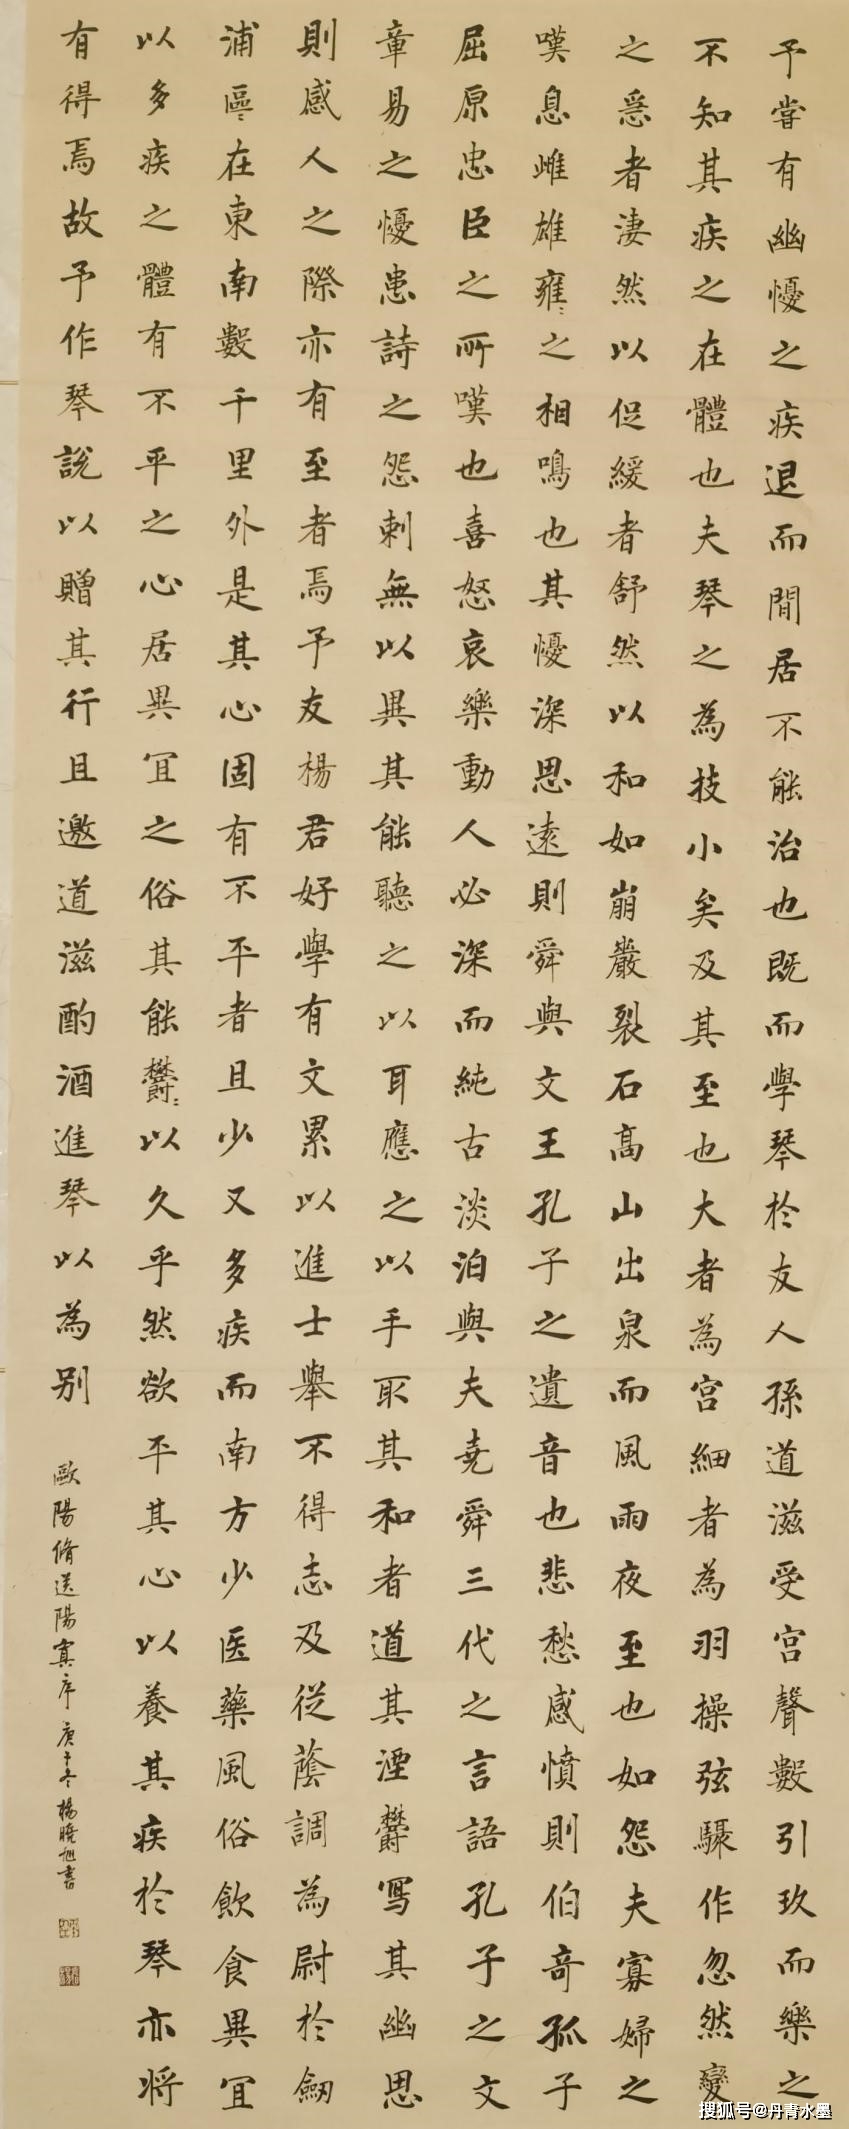 予嘗有幽懮之疾退而閒居不能治也既而學琴於友人孫道滋受宮聲數引玖而樂之
不知其疾之在體也夫琴之為技小矣及其至也大者為宮細者為羽操弦驟作忽然變
之急者淒然以促緩者舒然以和如崩巖裂石高山出泉而風雨夜至也如怨夫寡婦之
嘆息雌雄雍〻之相鳴也其懮深思遠則舜與文王孔子之遺音也悲愁感憤則伯奇孤子
屈原忠臣之所嘆也喜怒哀樂動人必深而純古淡泊與夫堯舜三代之言語孔子之文
章易之懮患詩之怨刺無以異其能聽之以耳應之以手取其和者道其湮鬱寫其幽思
則感人之際亦有至者焉予友楊君好學有文累以進士舉不得志及從蔭調為尉於劒
浦區〻在東南數千里外是其心固有不平者且少又多疾而南方少医藥風俗飲食異宜
以多疾之體有不平之心居異宜之俗其能鬱〻以久乎然欲平其心以養其疾於琴亦將
有得焉故予作琴說以贈其行且邀道滋酌酒進琴以為別
歐陽脩送陽寘序 庚子冬楊曉旭書
搜狐号@丹青水墨